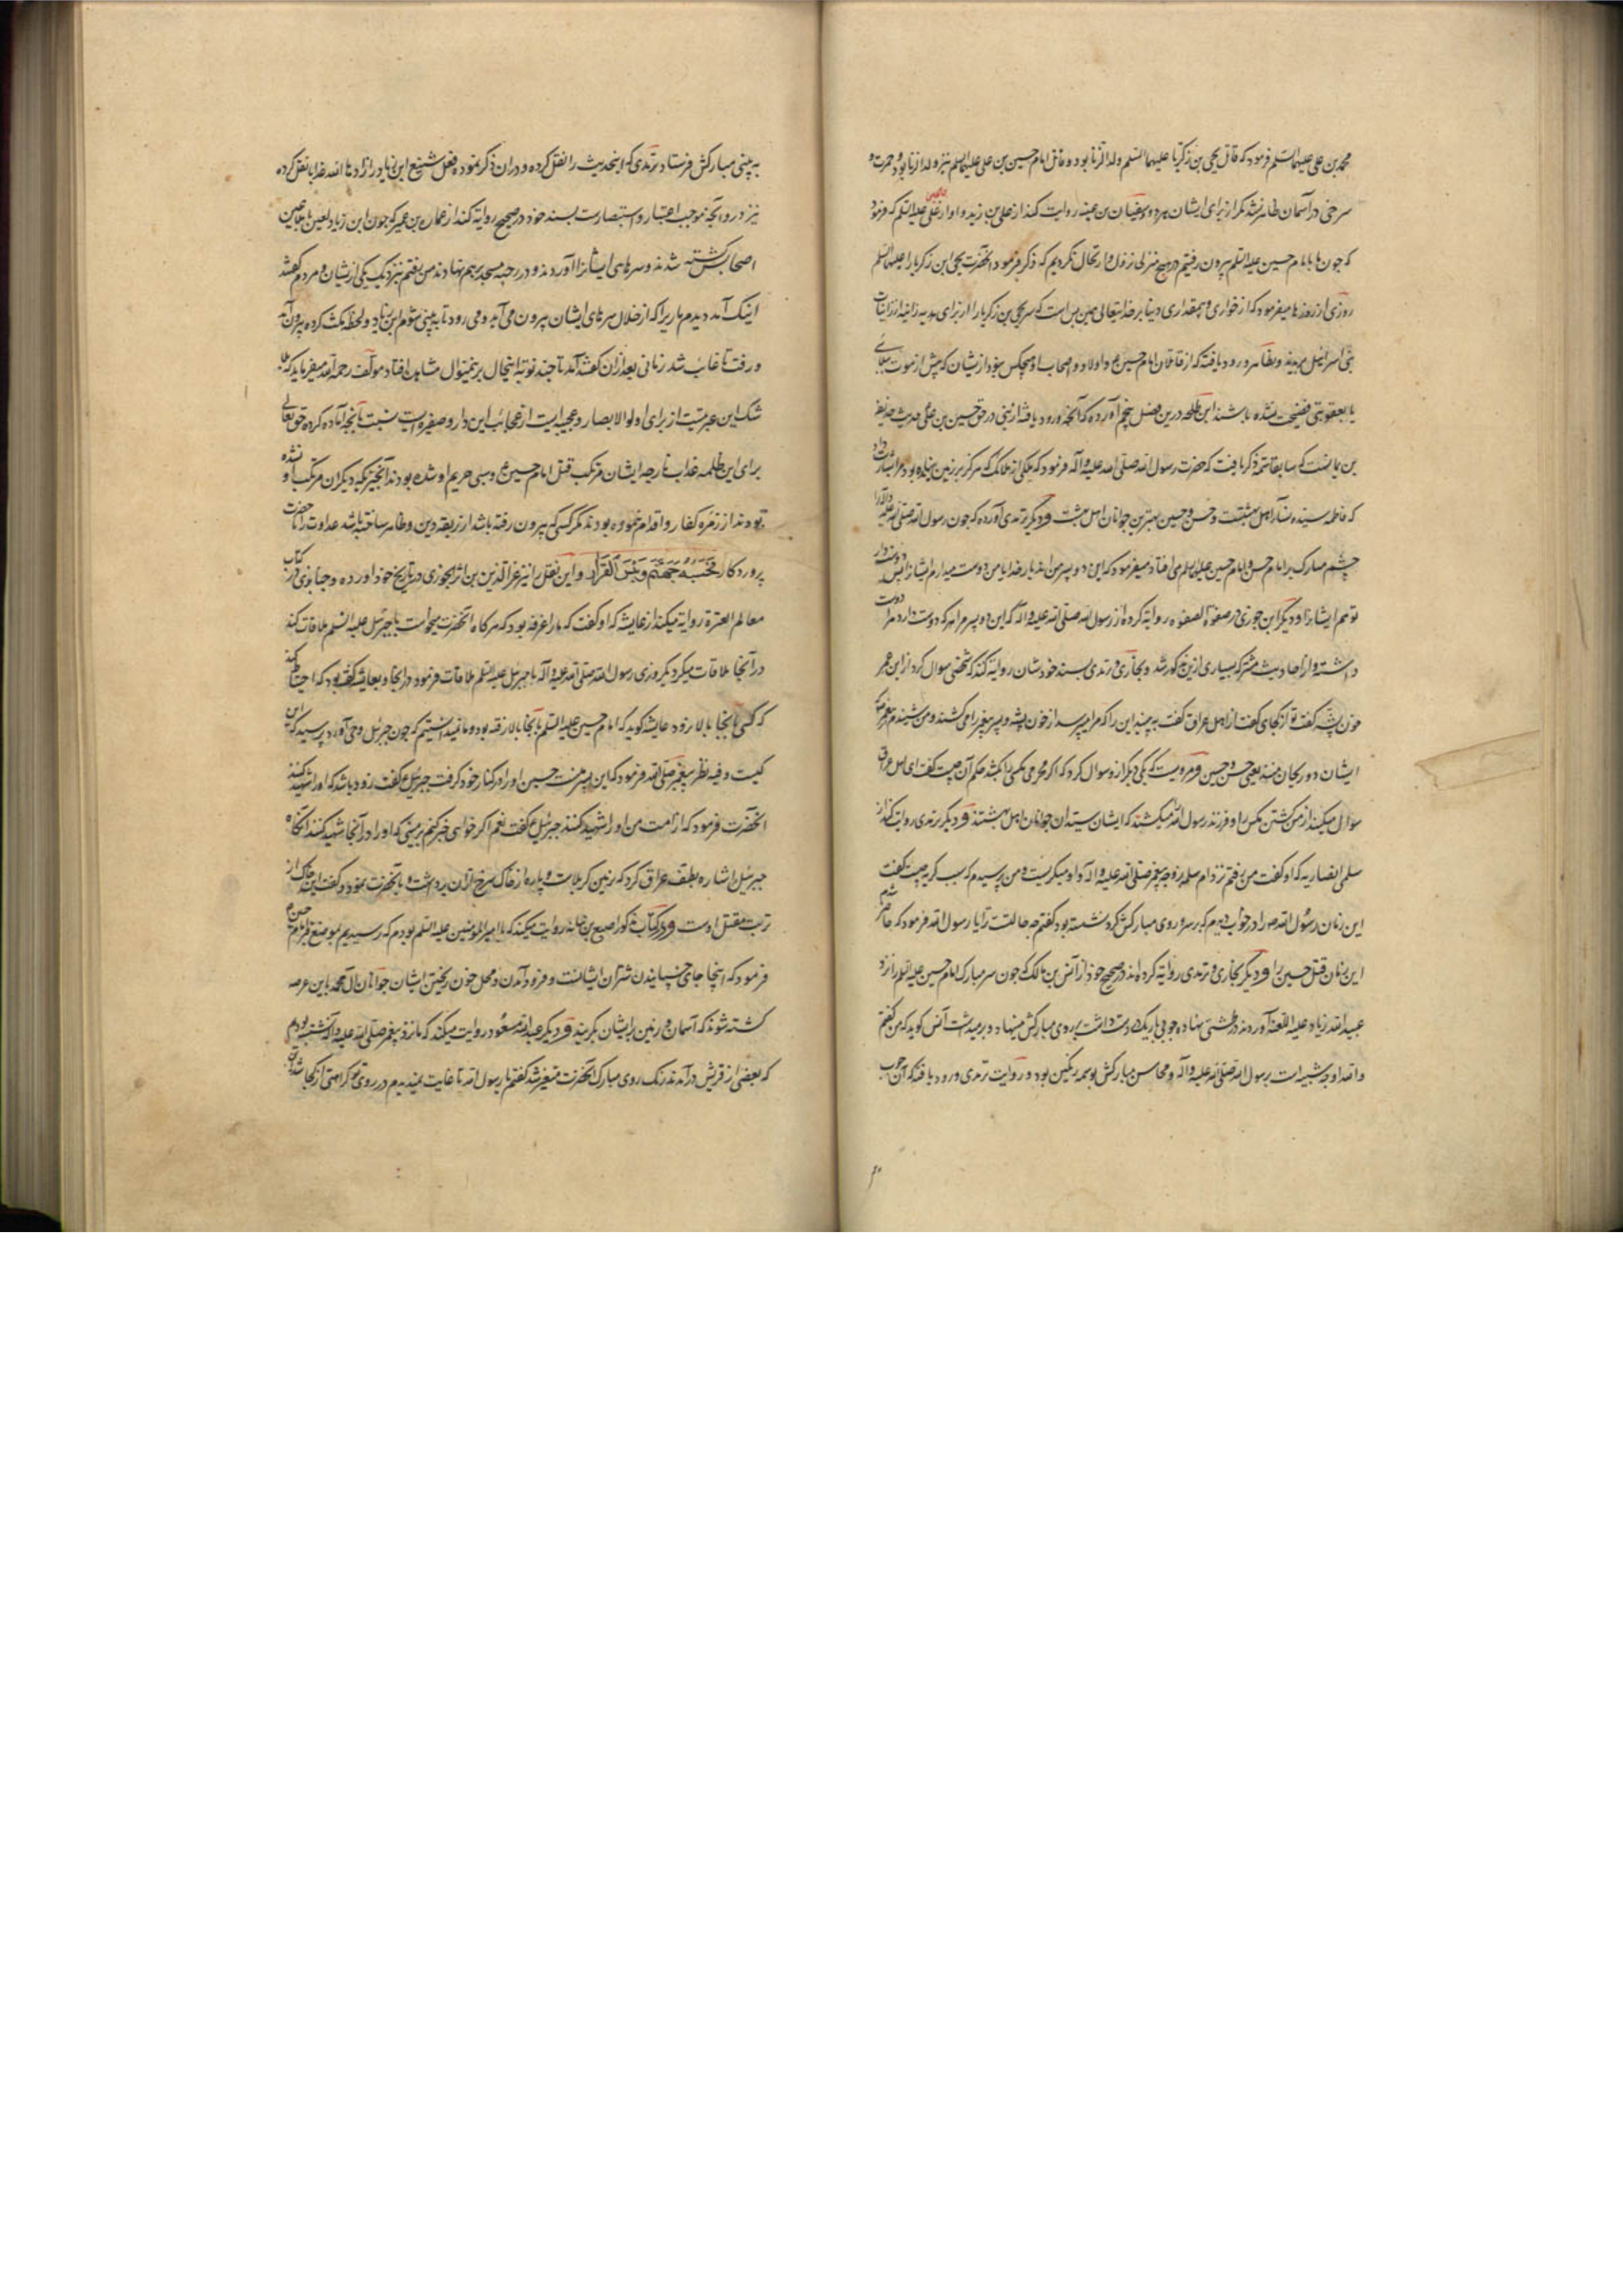 محمد بن علی علیهما السلم فرمود که قاتل یحیی بن زکریا علیهما السلم ولد الزنا بود و قاتل امام حسین بن علی علیهما السلم نیز ولد الزنا بود و حمرت و
سرخی در آسمان ظاهر نشد مگر از برای ایشان هر دو و سفیان بن عیینه روایت کند از علی بن زید و او از علی علیه السلم که فرمود
که چون ما با امام حسین علیه السلم بیرون رفتیم در هیچ منزلی نزول و ارتحال نکردیم که ذکر نفرمود آنحضرت یحیی ابن زکریا را علیهما السلم
روزی از روزها میفرمود که از خواری و بیمقداری دنیا بر خدایتعالی همین بس است که سر یحیی بن زکریا را از برای هدیه زانیه از زانیات
بنی اسرائیل بردند و بتظاهر ورود یافته که از قاتلان امام حسین ع و اولاد و اصحاب او هیچکس نبود از ایشان که پیش از موت ببلائی
یا بعقوبتی فضیحت نشده باشند ابن طلحه درین فصل پنجم آورده که آنچه ورود یافته از نبی در حق حسین بن علی حدیث حذیفه
بن یمانست که سابقا تتمه ذکر یافت که حضرت رسول الله صلی الله علیه و آله فرمود که ملکی از ملائک که هرگز بر زمین نیامده بود مرا بشارت داد
که فاطمه سیده نساء اهل بهشتست و حسن و حسین بهترین جوانان اهل بهشت و دیگر ترمذی آورده که چون رسول الله صلی الله علیه و آله را
چشم مبارک بر امام حسن و امام حسین علیهما السلم می افتاد میفرمود که این دو پسر من اند بار خدایا من دوست میدارم ایشانرا پس دوست دار
تو هم ایشانرا و دیگر ابن جوزی در صفوة الصفوه روایة کرده از رسول الله صلی الله علیه و آله که این دو پسر مرا هر که دوست دارد مرا دوست
داشته و از احادیث مشترکه بسیاری ازین مذکور شد و بخاری و ترمذی بسند خودشان روایة کنند که شخصی سوال کرد از ابن عمر
خون پشه گفت تو از کجای گفت از اهل عراق گفت به بینید این را که مرا می پرسد از خون پشه و پسر پیغمبر را می کشند و من شنیدم از پیغمبر که
ایشان دو ریحان منند یعنی حسن و حسین و مرویست که یکی دیگر ازو سوال کرد که اگر محرمی مگسی را بکشد حکم آن چیست گفت ای اهل عراق
سوال میکنید از من کشتن مگس را و فرزند رسول الله میکشند که ایشان سیدان جوانان اهل بهشتند و دیگر ترمذی روایت کند از
سلمی انصاریه که او گفت من رفتم نزد ام سلمه زوجه پیغمبر صلی الله علیه و آله و او میگریست و من پرسیدم که سبب گریه چیست گفت
این زمان رسول الله ص را در خواب دیدم که بر سر و روی مبارکش گرد نشسته بود گفتم چه حالتست ترا یا رسول الله فرمود که حاضر شدم
این زمان قتل حسین را و دیگر بخاری و ترمذی روایة کرده اند در صحیح خود از انس بن مالک که چون سر مبارک امام حسین علیه السلم را نزد
عبید الله زیاد علیه اللعنه آوردند در طشتی نهاده چوبی باریک در دست داشت بروی مبارکش مینهاد و برمیداشت انس گوید که من گفتم
و الله او چه شبیه است برسول الله صلی الله علیه و آله و محاسن مبارکش بوسمه رنگین بود و روایت ترمذی ورود یافته که آن چوب
به بینی مبارکش فرستاد ترمذی که اینحدیث را نقل کرده و در آن ذکر نموده فعل شنیع ابن زیاد را زاده الله عذابا نقل کرده
نیز در و آنچه موجب اعتبار و استبصارست بسند خود در صحیح روایة کند از عماره بن عمیر که چون ابن زیاد لعین با ملاعین
اصحابش کشته شدند و سرهای ایشانرا آوردند و در رحبه مسجد بر هم نهادند من رفتم نزدیک یکی از ایشان و مردم گفتند
اینک آمد دیدم ماریرا که از خلال سرهای ایشان بیرون می آید و می رود تا به بینی شوم ابن زیاد و لحظه مکث کرده بیرون آمد
و رفت تا غایب شد زمانی بعد از آن گفتند آمد تا چند نوبة اینحال برینمنوال مشاهده افتاد مولف رحمه الله میفرماید که بلا
شک این عبرتیست از برای اولو الابصار و عجیبه ایست از عجائب این دار و صغیره ایست نسبت بآنچه آماده کرده حق تعالی
برای این ظلمه عذاب نار چه ایشان مرتکب قتل امام حسین ع و سبی حریم او شده بودند آنچیزیکه دیگران مرتکب او نشده
بودند از زمره کفار و اقدام ننموده بودند مگر کسی که بیرون رفته باشد از ربقه دین و ظاهر ساخته باشد عداوت را با حضرت
پروردکار فَحَسْبُهُ جَهَنَّمُ وَبِئْسَ الْقَرَارُ و این نقل را نیز عز الدین بن اثیر الجزری در تاریخ خود آورده و جنابذی در کتاب
معالم العترة روایة میکند از عایشه که او گفت که ما را غرفه بود که هرگاه آنحضرت میخواست با جبرئیل علیه السلم ملاقات کند
در آنجا ملاقات میکرد یکروزی رسول الله صلی الله علیه و آله با جبرئیل علیه السلم ملاقات فرمود در آنجا و بعایشه گفته بود که احتیاط کند
که کسی بآنجا بالا نرود عایشه گوید که امام حسین علیه السلم بآنجا بالا رفته بود و ما ندانستیم که چون جبرئیل وحی آورد پرسید که این
کیست و فیه نظر پیغمبر صلی الله فرمود که این پسر منست حسین او را در کنار خود گرفت جبرئیل ع گفت زود باشد که او را شهید کنند
آنحضرت فرمود که از امت من او را شهید کنند جبرئیل ع گفت نعم اگر خواهی خبر کنم بزمینی که او را در آنجا شهید کنند آنگاه
جبرئیل اشاره بطف عراق کرد که زمین کربلاست و پاره از خاک سرخ از آن برداشت و بآنحضرت نمود و گفت این خاک از
تربت مقتل اوست و در کتاب مذکور اصبغ بن نباته روایت میکند که با امیر المومنین علیه السلم بودم که رسیدیم بموضع قبر امام حسین ع
فرمود که اینجا جای خسپانیدن شتران ایشانست و فرود آمدن و محل خون ریختن ایشان جوانان ال محمد باین عرصه
کشته شوند که آسمان و زمین بر ایشان بگریند و دیگر عبد الله مسعود روایت میکند که ما نزد پیغمبر صلی الله علیه و اله نشسته بودیم
که بعضی از قریش درآمدند رنگ روی مبارک آنحضرت متغیر شد گفتم یا رسول الله تا غایت ندیدیم در روی تو کراهتی از کجا